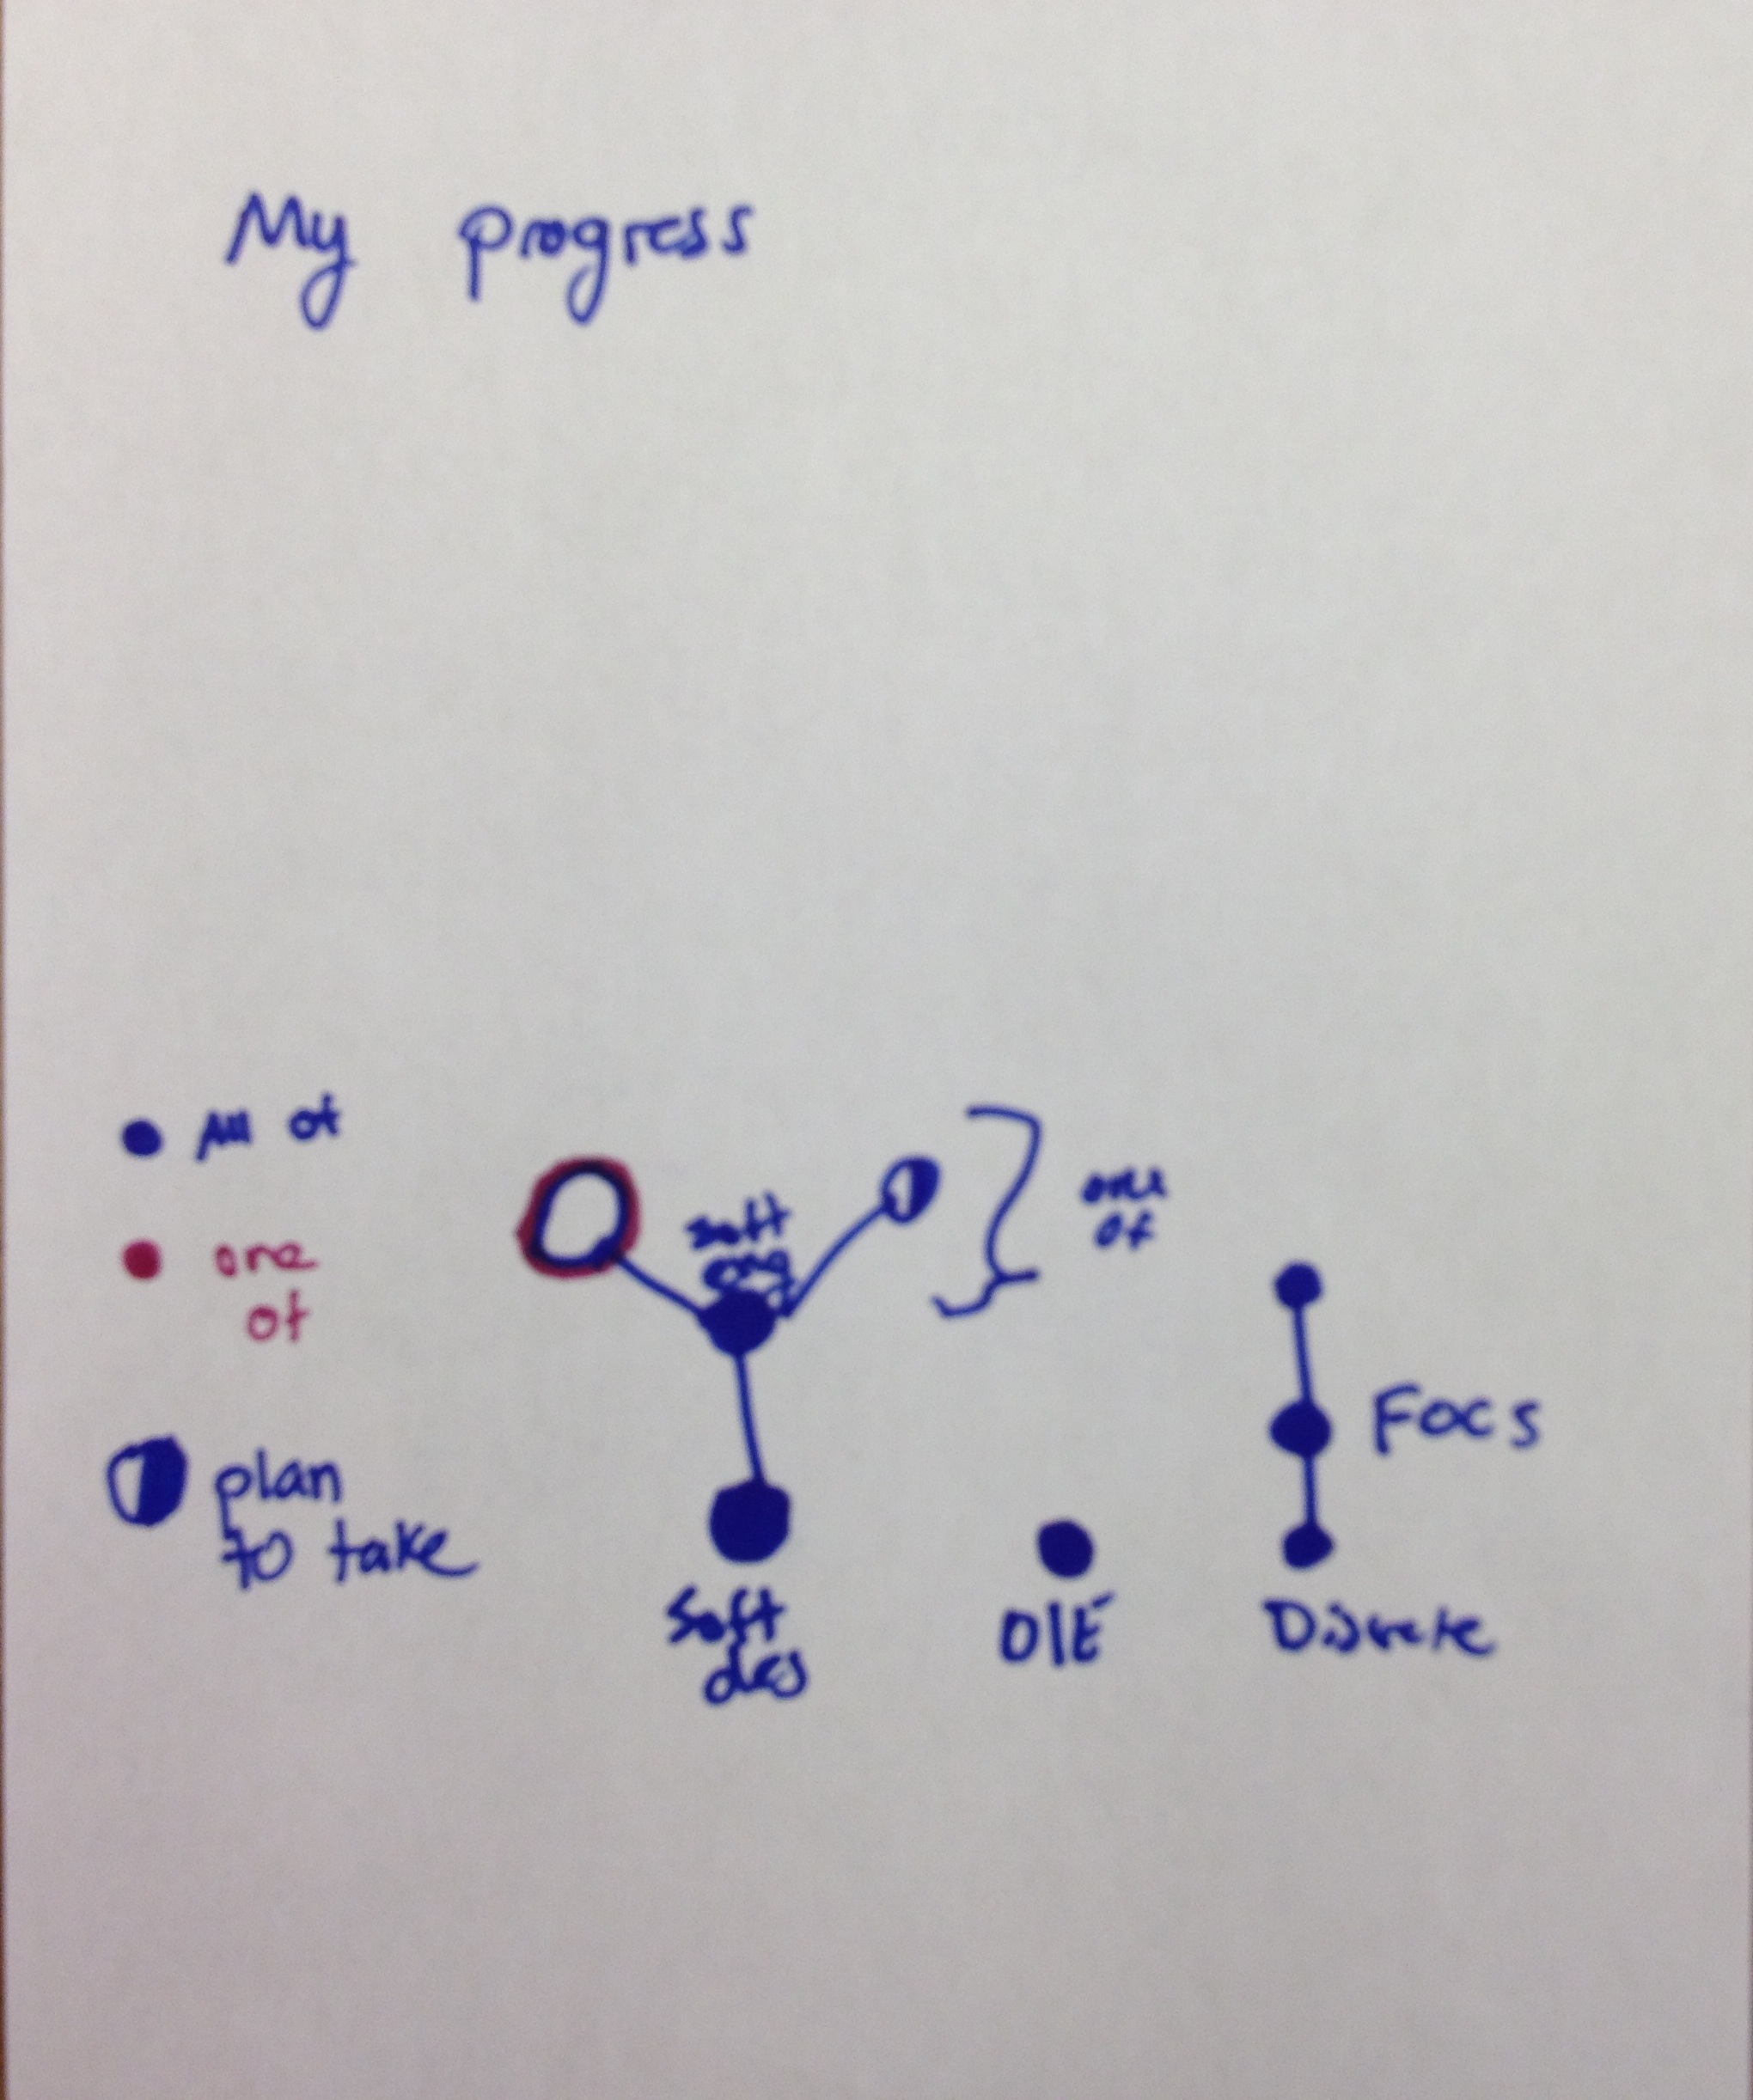 My progress
All of
one
of
plan
to take
soft
eng
one
of
Focs
Soft
des
OIE
Discrete